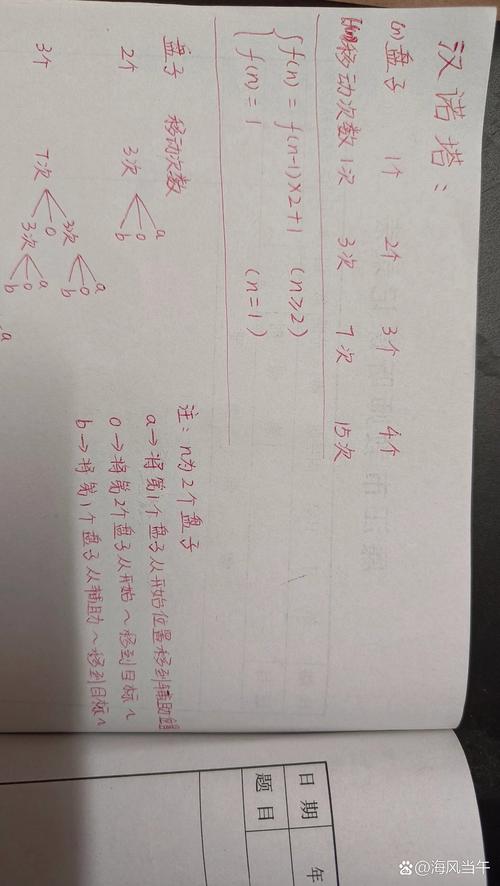 汉诺塔：
(n)盘子 1个 2个 3个 4个
移动次数 1次 3次 7次 15次
f(n) = f(n-1)×2+1 (n≥2)
f(n) = 1 (n=1)
盘子 移动次数
2个 3次 a
o
b
3个 7次 3次 a
o
b
o
3次 a
o
b
a
注：n为2个盘子
a→将第1个盘子从开始位置移到辅助
o→将第2个盘子从开始~移到目标~
b→将第1个盘子从辅助~移到目标~
日期 年
题目
@海风当午